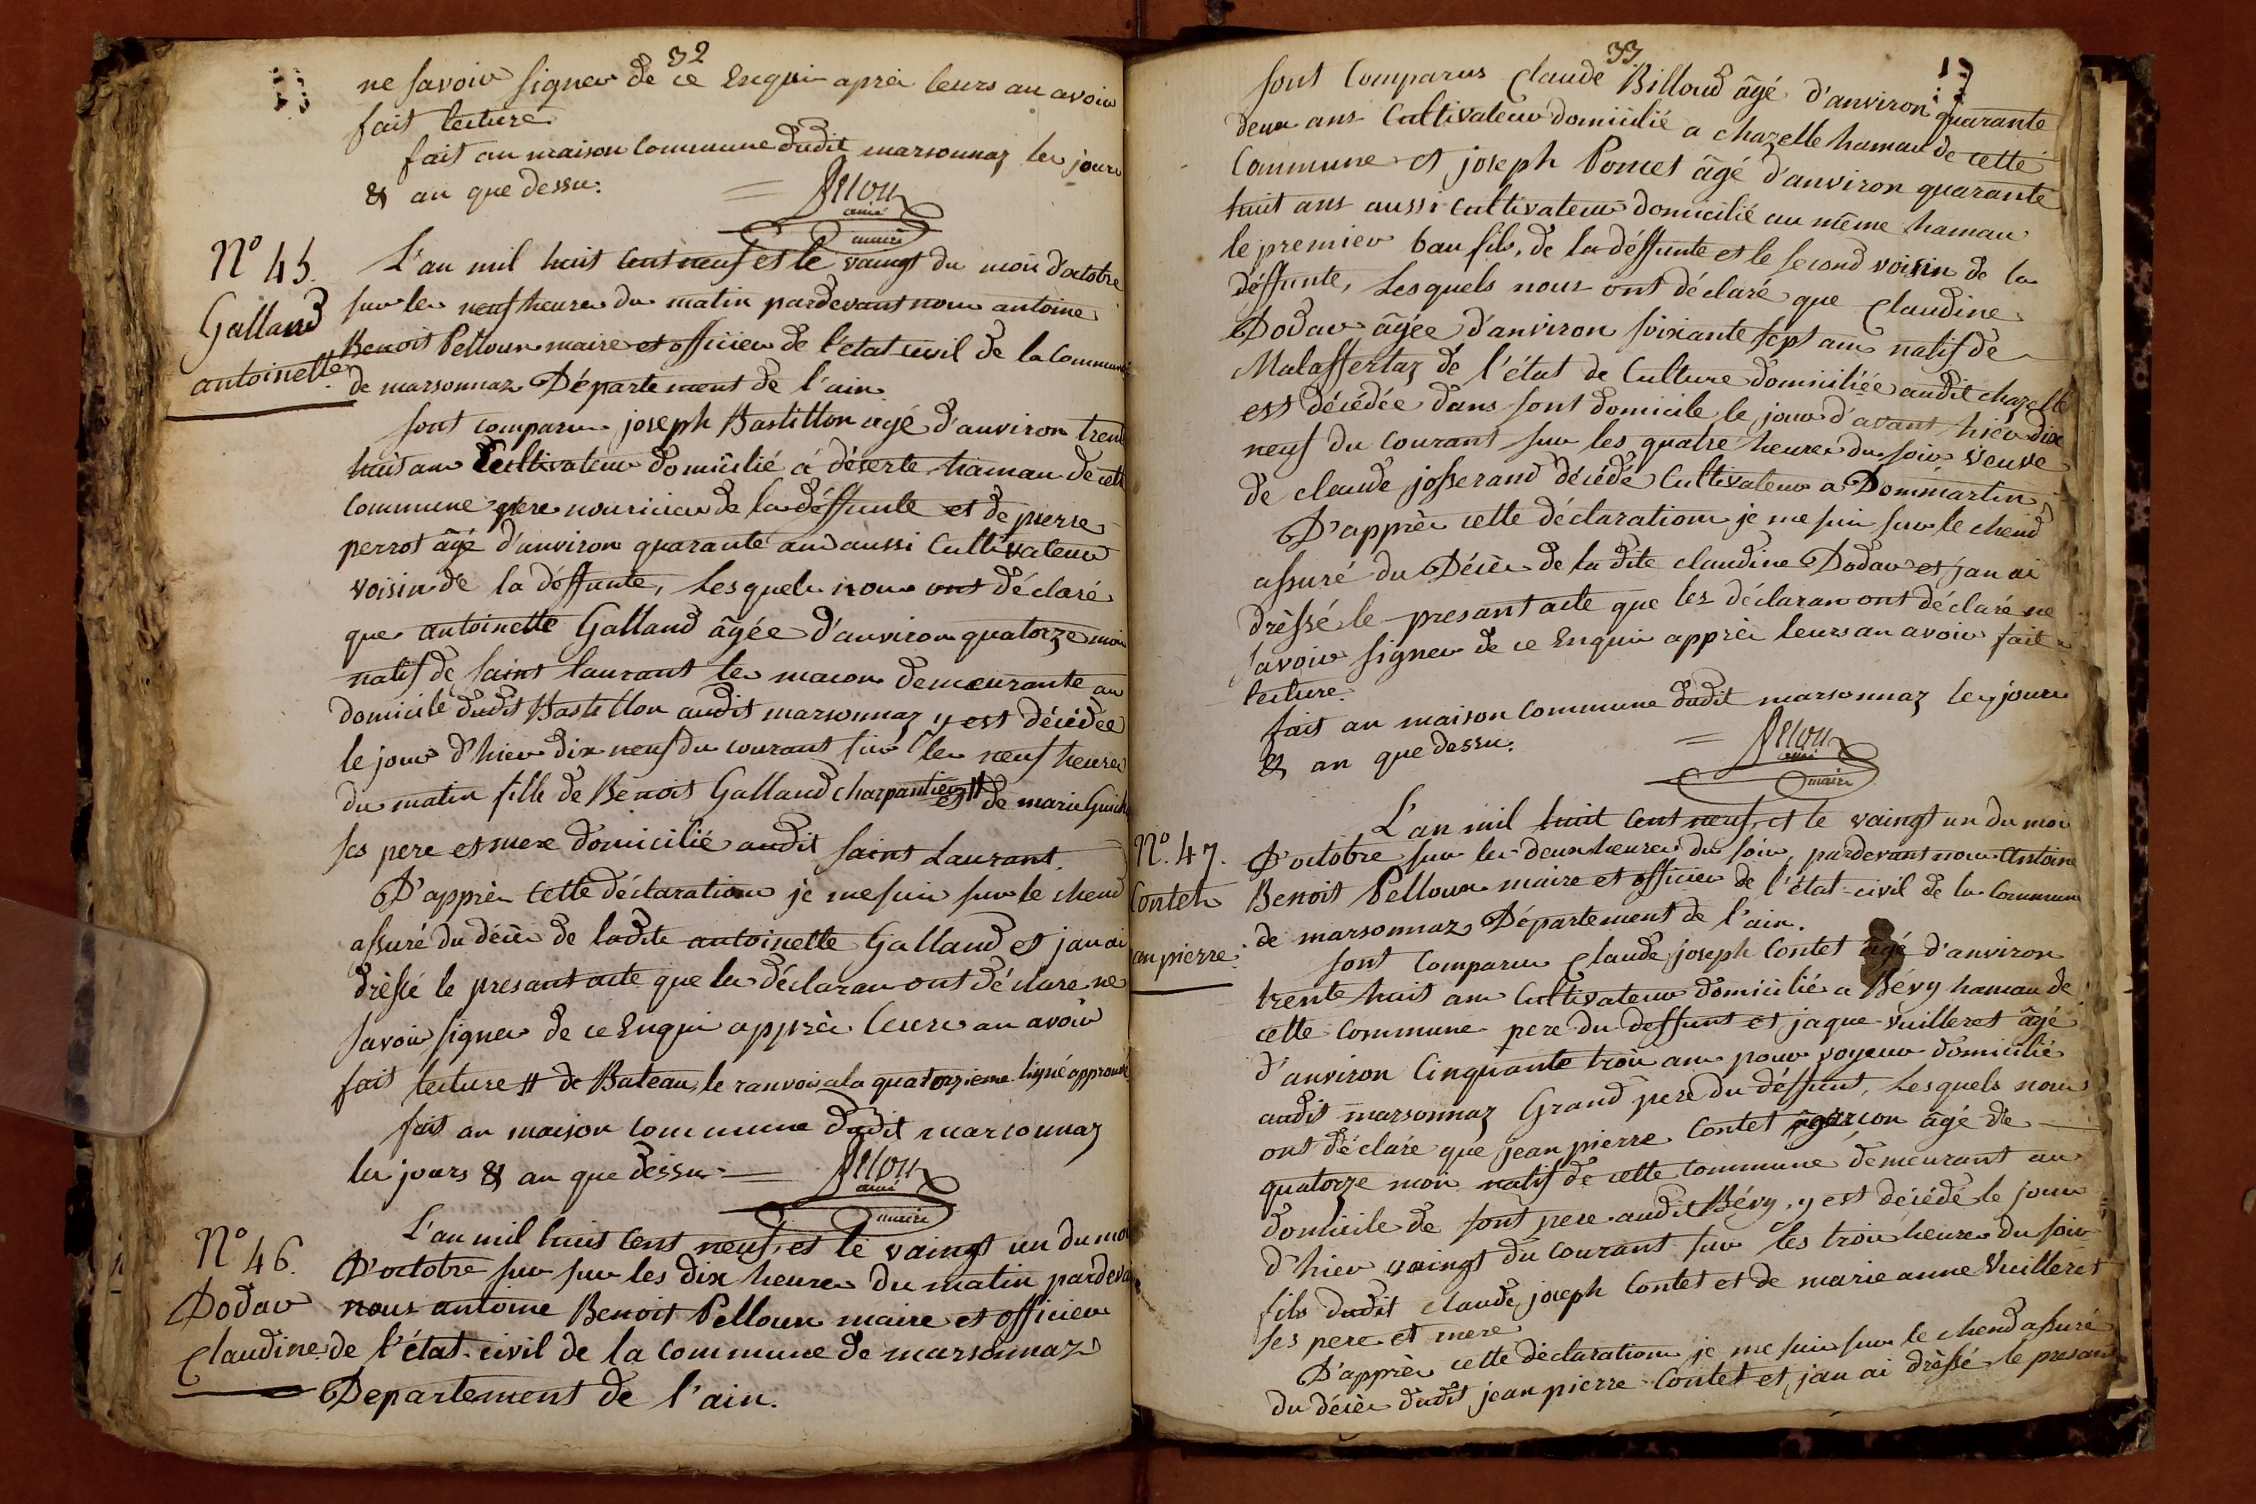 32
ne savoir signer de ce Enquis aprèr leurs an avoir
fait lecture
fait an maison Commune dudit marsonnaz les jours
& an que dessus.
Pelloux
maire
N° 45.
Galland
antoinette
L'an mil huit Cent neuf et le vaingt du mois d'octobre
sur les neuf heures du matin pardevant nous antoine
Benoit Pelloux maire et officier de l'état civil de la Commune
de marsonnaz Département de l'ain.
sont comparus joseph Bastillon agé d'anviron trente
huit ans Cultivateur domicilié à déserte hamau de cette
Commune pere nouricier de la déffunte et de pierre
perrot âgé d'anviron quarante ans aussi Cultivateur
voisin de la déffunte, Lesquels nous ont déclaré
que antoinette Galland âgée d'anviron quatorze mois
natif de saint laurant les macon demeurante au
domicile dudit Bastillon audit marsonnaz y est décédée
le jour d'hier dix neuf du courant sur les neuf heures
du matin fille de Benoit Galland charpantier # et de marie Guich
ses pere et mere domicilié audit saint Laurant.
D'apprèr cette déclaration je me suis sur le chend
assuré du décèr de ladite antoinette Galland et jan ai
drèssé le presant acte que les déclaran ont déclaré ne
savoir signer de ce Enquis apprèr leurs an avoir
fait lecture # de Bateau, le ranvoi a la quatorzieme ligne approuvé
fait an maison commune dudit marsonnaz
les jours & an que dessus.
Pelloux
maire
N° 46.
Dodav
Claudine
L'an mil huit Cent neuf, et le vaingt un du mois
D'octobre sur sur les dix heures du matin pardevant
nous antoine Benoit Pelloux maire et officier
de l'état-civil de la Commune de marsonnaz
Departement de l'ain.
33
sont Comparus Claude Billoud âgé d'anviron quarante
deux ans Cultivateur domicilié a chazelle hamau de cette
Commune et joseph Poncet âgé d'anviron quarante
huit ans aussi cultivateur domicilié au même hamau
le premier bau fils, de la déffunte et le second voisin de la
déffunte, Lesquels nous ont déclaré que Claudine
Dodav âgée d'anviron soixante sept ans natif de
Malaffertaz de l'état de Culture domiciliée audit chazelle
est décédée dans sont domicile le jour d'avant hièr dix
neuf du courant sur les quatre heures du soir veuve
de claude josserand décédé Cultivateur a Dommartin.
D'apprèr cette déclaration je me suis sur le chend
assuré du Décèr de la dite claudine Dodav et jan ai
drèssé le presant acte que les déclaran ont déclaré ne
savoir signer de ce Enquis apprèr leurs an avoir fait
lecture.
fait an maison Commune dudit marsonnaz les jours
& an que dessus.
Pelloux
maire
N°. 47.
Contet
jan pierre
L'an mil huit Cent neuf, et le vaingt un du mois
D'octobre sur les deux heures du soir pardevant nous Antoine
Benoit Pelloux maire et officier de l'état-civil de la Commune
de marsonnaz Département de l'ain.
sont Comparus claude joseph Contet âgé d'anviron
trente huit ans Cultivateur domicilié a Bévy hamau de
cette Commune pere du deffunt et jaque vuilleret âgé
d'anviron Cinquante trois ans pour voyeur domicilié
audit marsonnaz Grand pere du déffunt, Lesquels nous
ont déclaré que jean pierre Contet garcon âgé de
quatorze mois natif de cette Commune demeurant au
domicile de sont pere audit Bévy, y est décédé le jour
d'hier vaingt du courant sur les trois heures du soir
fils dudit claude joseph Contet et de marie anne Vuilleret
ses pere et mere
D'apprèr cette déclaration je me suis sur le chend assuré
du décèr dudit jean pierre Contet et jan ai drèssé le presant